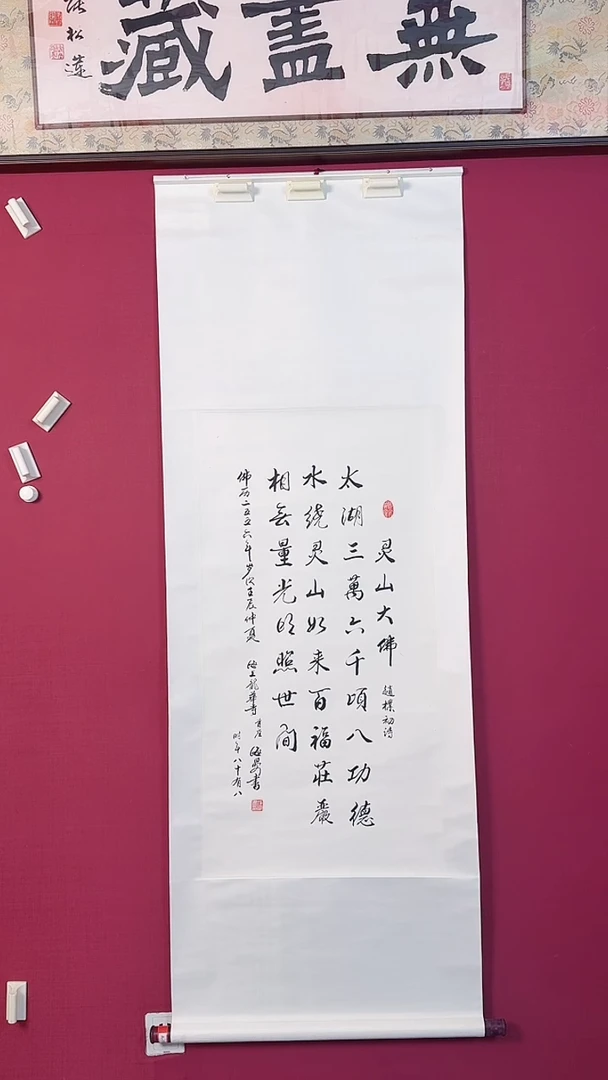 無盡藏
松蓮
灵山大佛 趙樸初詩
太湖三萬六千頃八功德
水绕灵山如来百福莊嚴
相無量光明照世间
佛历二五五六年岁次壬辰仲夏 海上龍華寺 书
时年八十有八